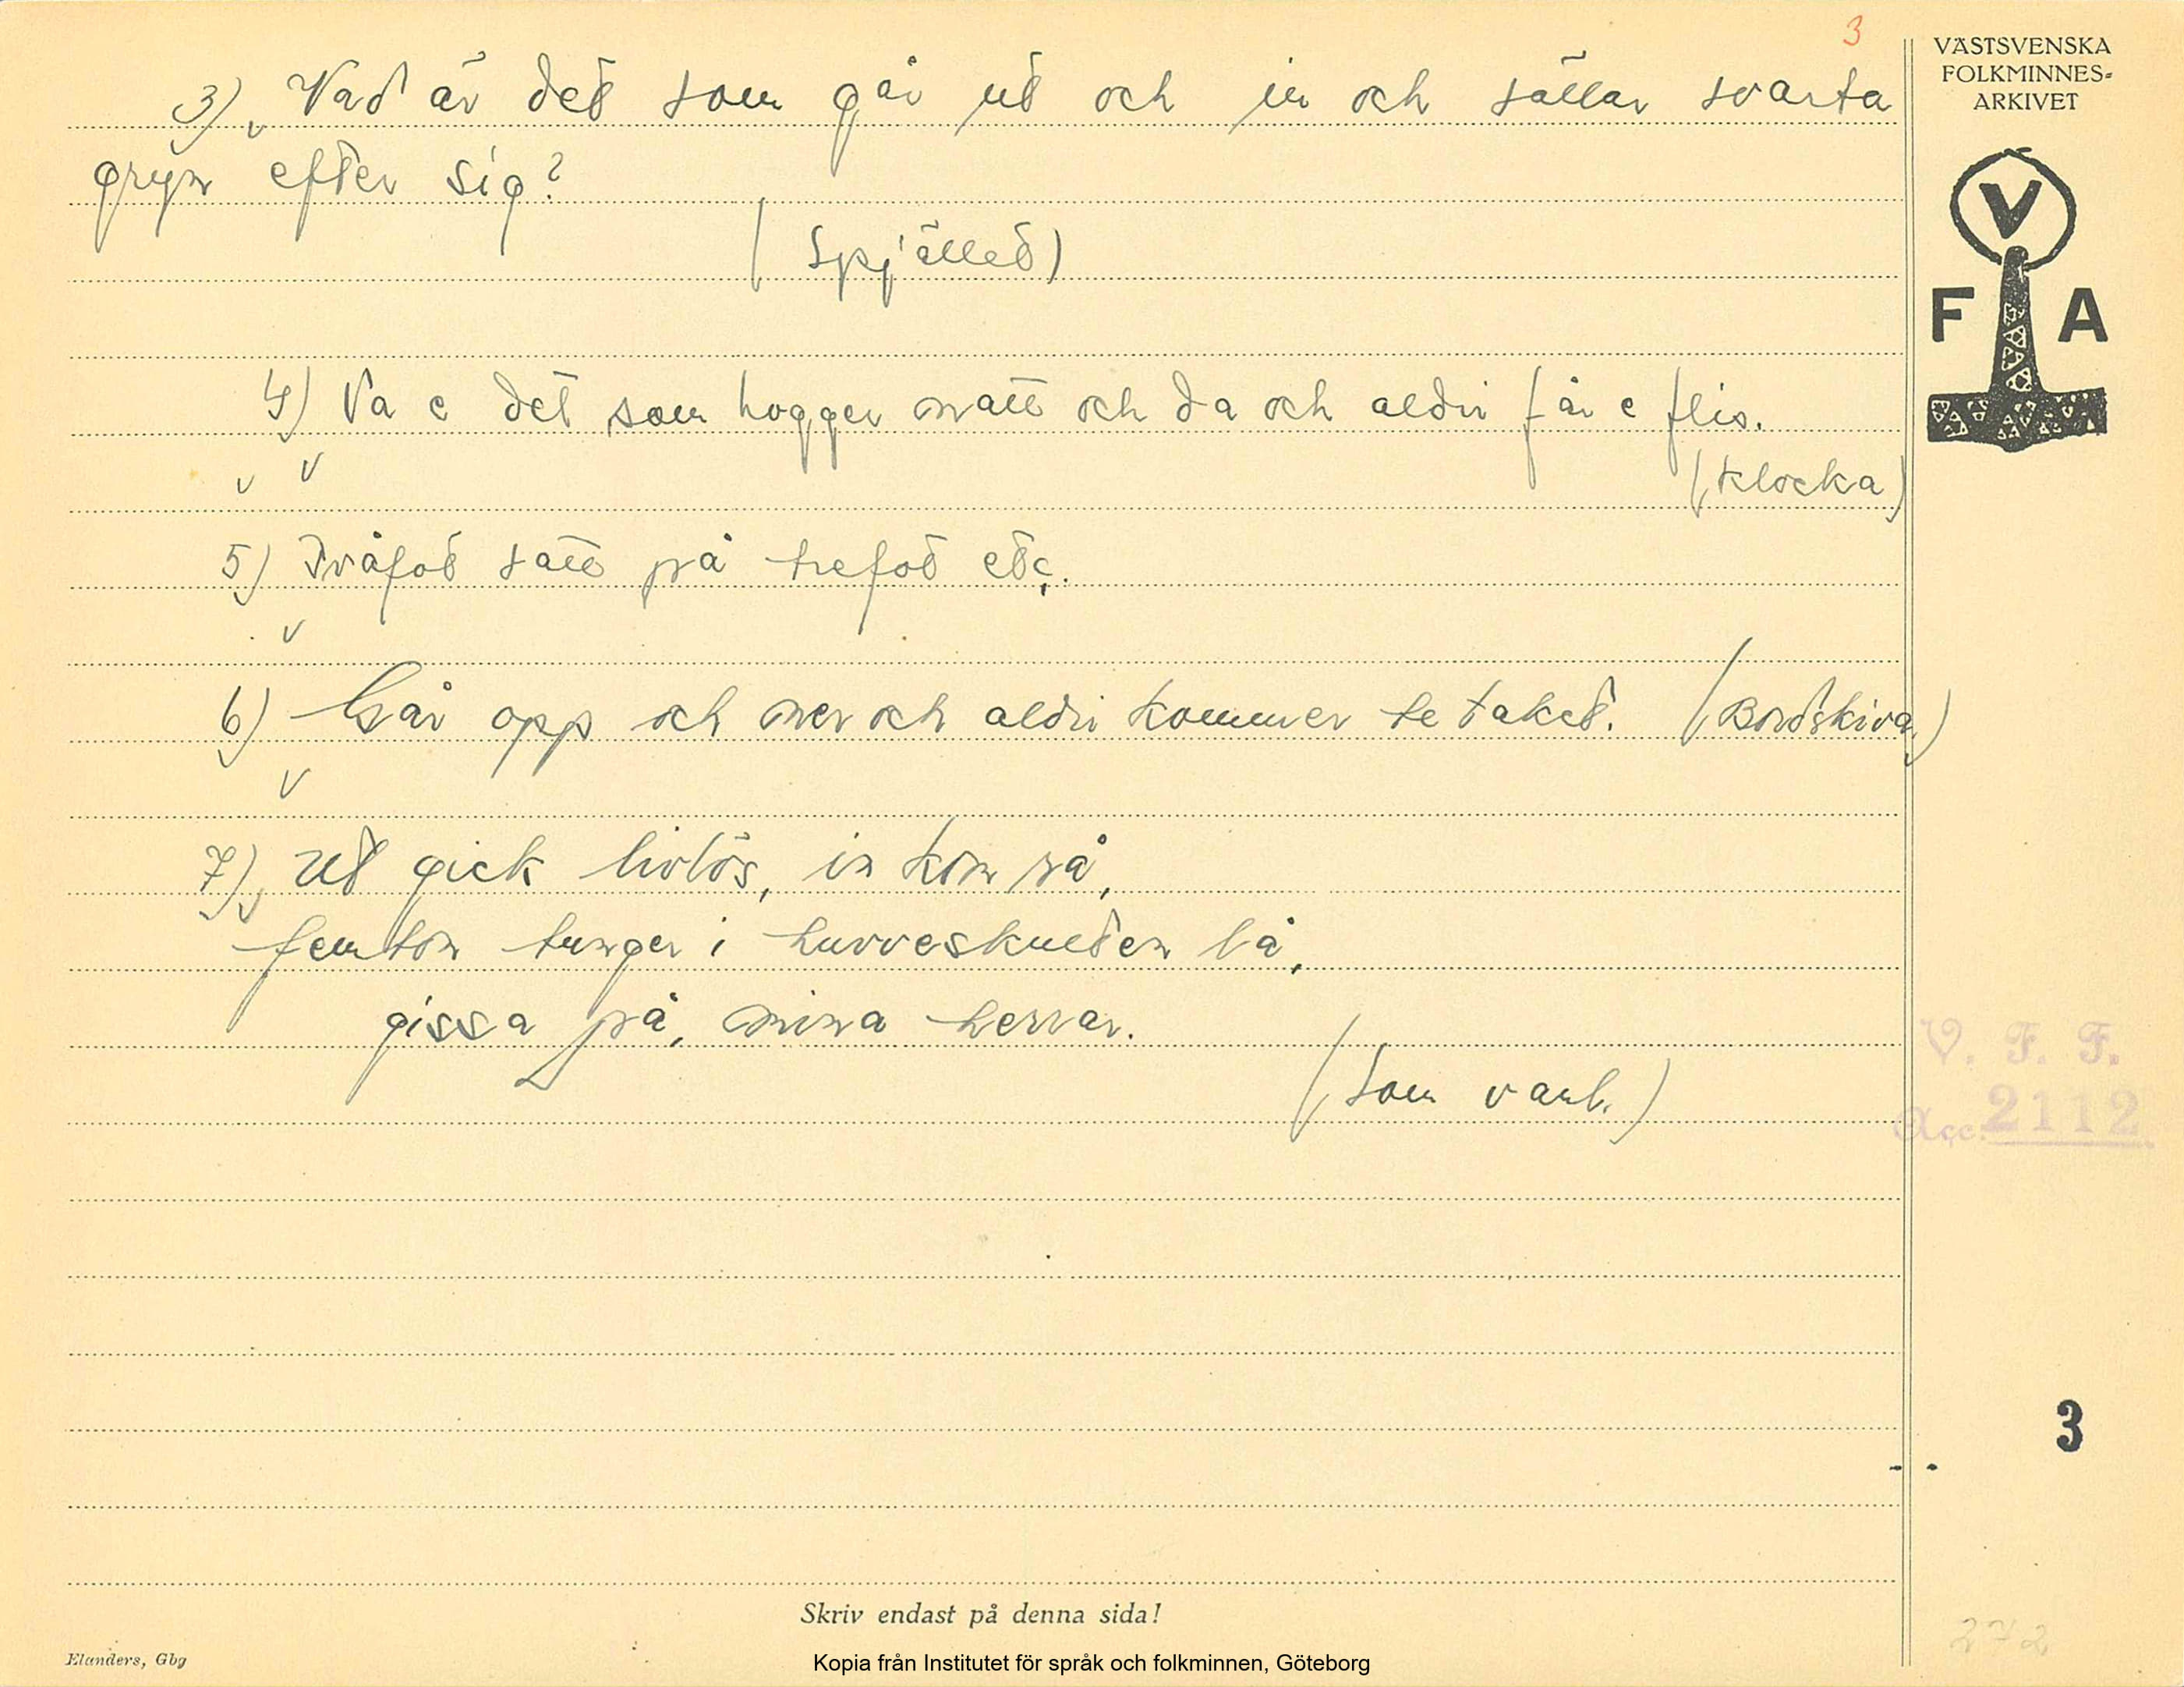 3
3) Vad är det som går ut och in och sållar svarta
gryn efter sig?
(Spjället)
4) Va e det som hogger natt och da och aldri får e flis.
(Klocka)
5) Tvåfot satt på trefot etc.
6) Går opp och ner och aldri kommer te taket. (Bordskiva)
7) Ut gick livlös, in kom så,
femton tunger i huvveskulten lå,
gissa på, mina herrar.
(Som vanl.)
VÄSTSVENSKA
FOLKMINNES-
ARKIVET
V
F A
V. F. F.
Acc. 2112
3
272
Skriv endast på denna sida!
Elanders, Gbg
Kopia från Institutet för språk och folkminnen, Göteborg